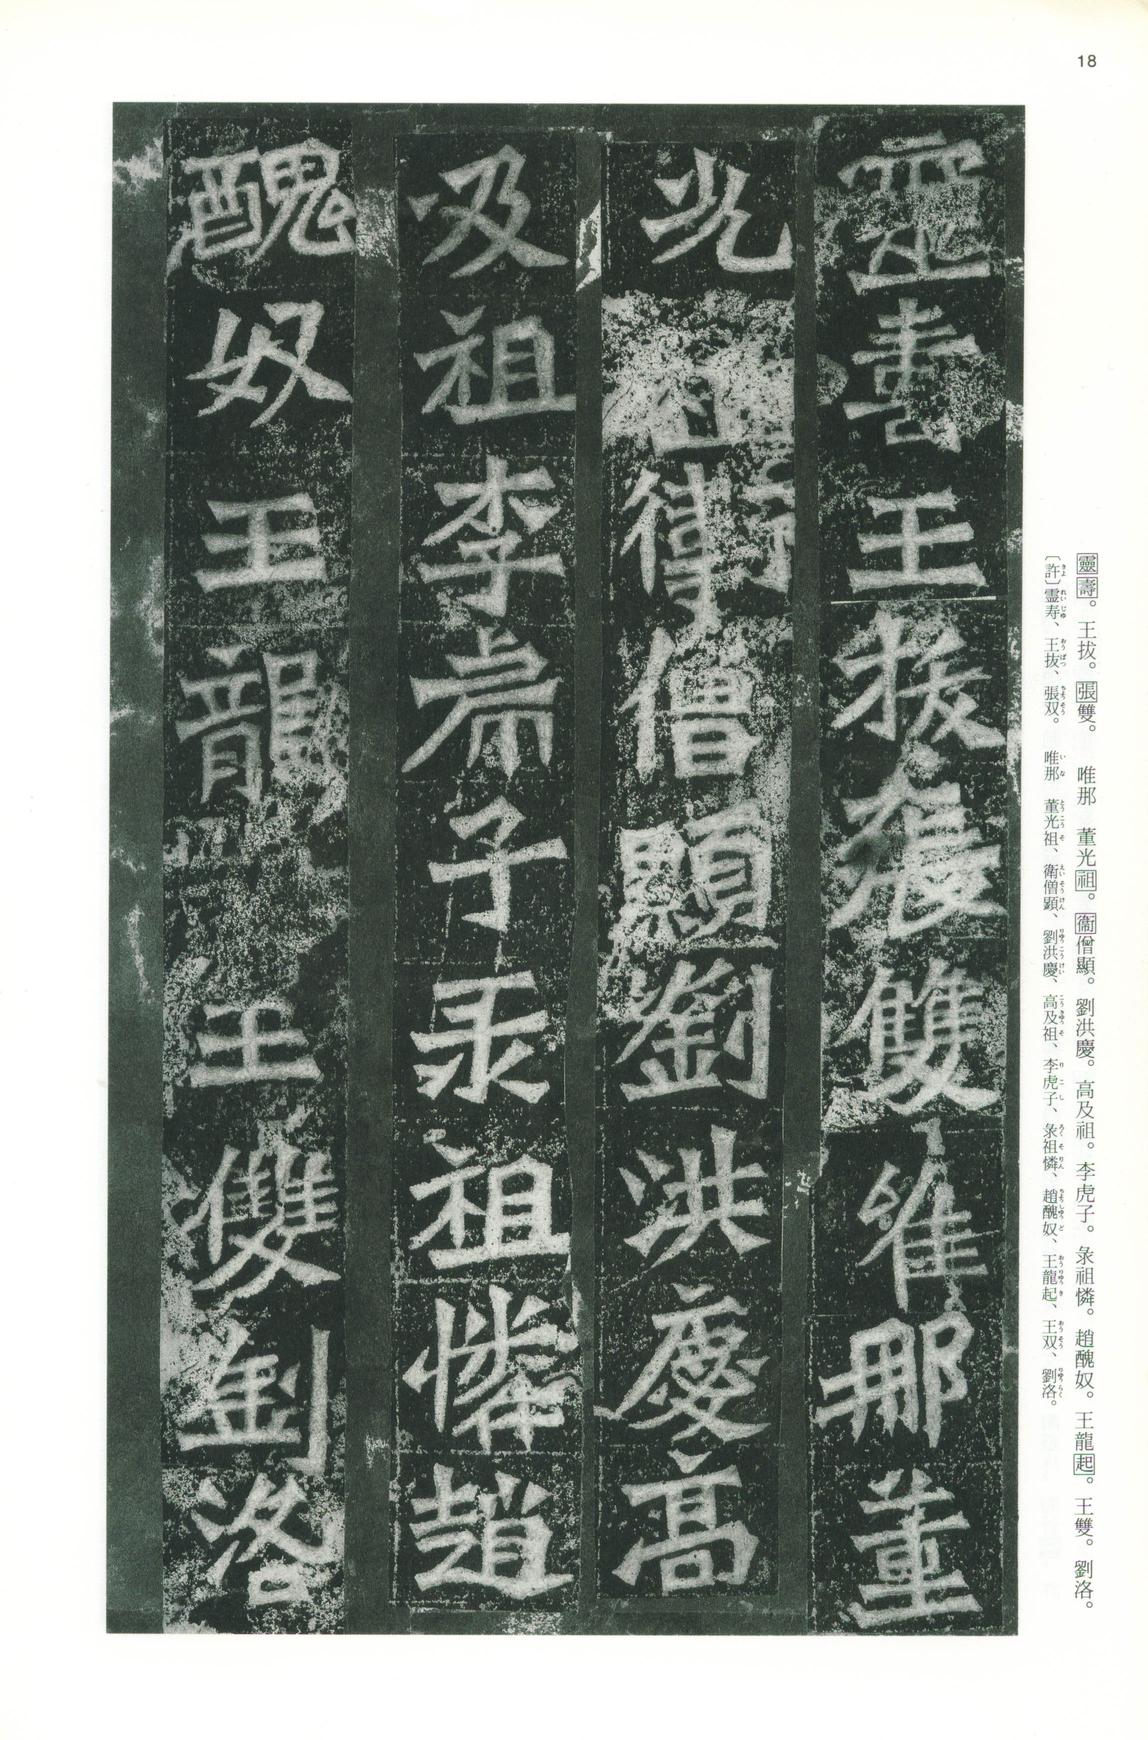 18
靈壽王拔張雙維那董
光祖衛僧顯劉洪慶高
及祖李虎子彖祖憐趙
醜奴王龍王雙劉洛
靈壽。王拔。張雙。　唯那　董光祖。衞僧顯。劉洪慶。高及祖。李虎子。彖祖憐。趙醜奴。王龍起。王雙。劉洛。
〔許〕霊寿、王抜、張双。　唯那　董光祖、衛僧顕、劉洪慶、高及祖、李虎子、彖祖憐、趙醜奴、王龍起、王双、劉洛。